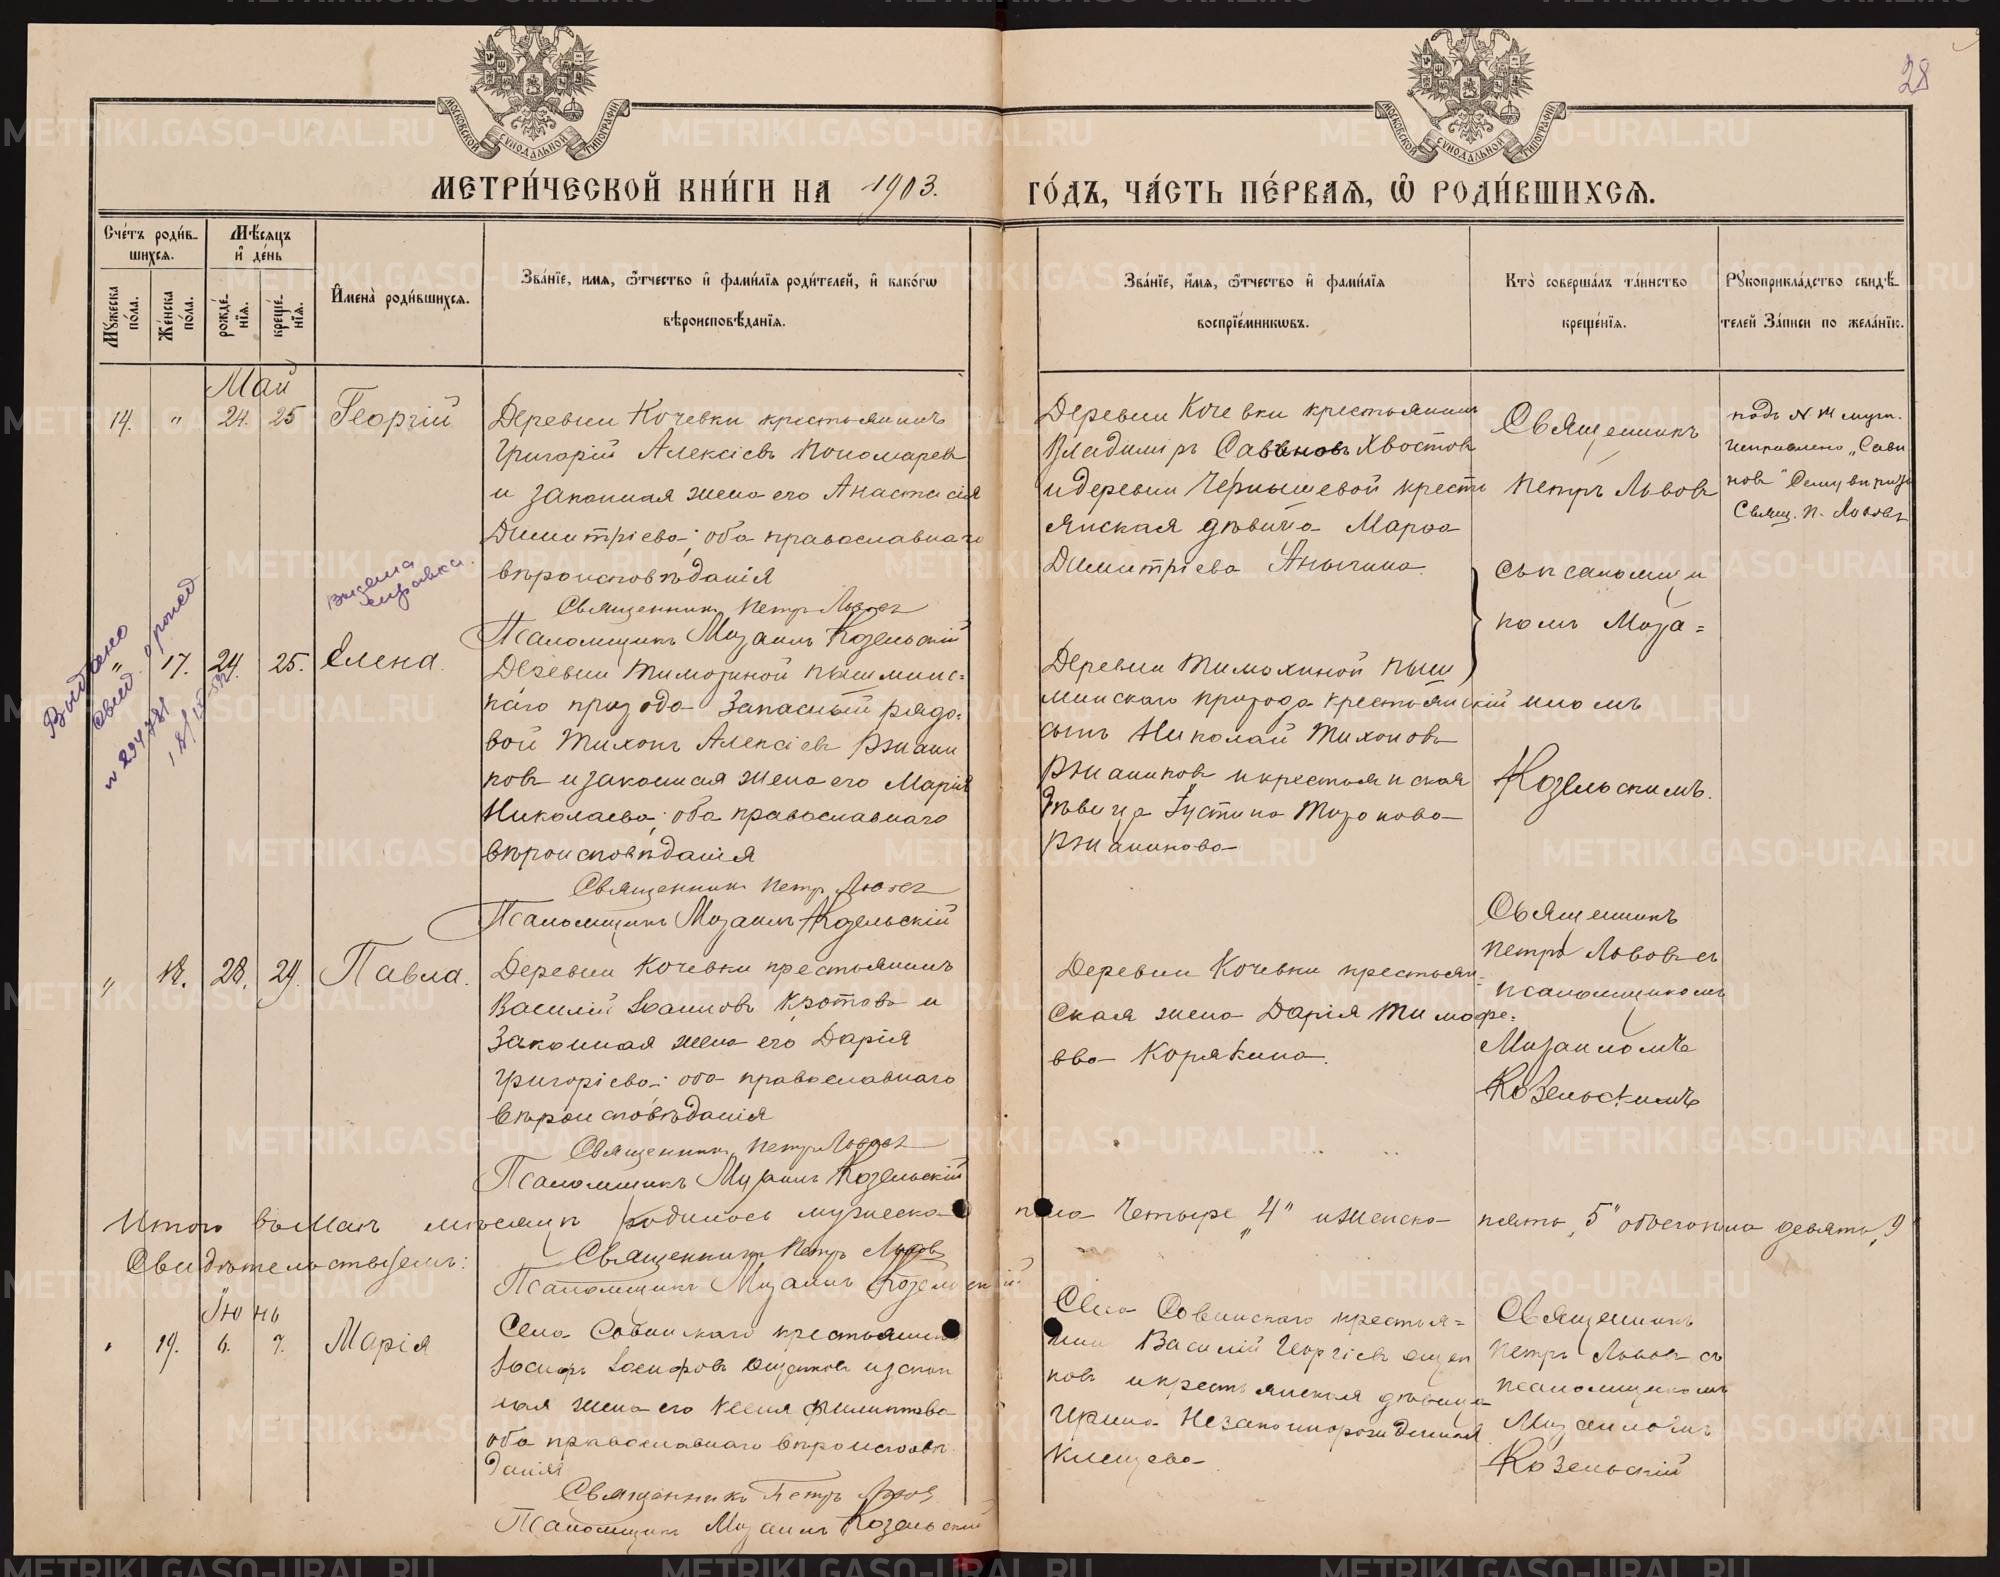 28
МОСКОВСКОЙ СУНОДАЛЬНОЙ ТИПОГРАФІИ
МОСКОВСКОЙ СУНОДАЛЬНОЙ ТИПОГРАФІИ
МЕТРИ́ЧЕСКОЙ КНИ́ГИ НА 1903. ГО́ДЪ, ЧА́СТЬ ПЕ́РВАЯ, Ѡ҆ РОДИ́ВШИХСЯ.
Сче́тъ роди́в-
шихся.
Мѣ́сяцъ
и҆ де́нь
Му́жеска по́ла.
Же́нска по́ла.
рожде́нїя.
креще́нїя.
И҆мена̀ роди́вшихся.
Зва́нїе, имя, ѻ҆́тчество и҆ фами́лїя роди́телей, и҆ како́гѡ
вѣроисповѣ́данїя.
Зва́нїе, и҆́мя, ѻ҆́тчество и҆ фами́лїя
воспрїе́мникѡвъ.
Кто̀ соверша́лъ та́инство
креще́нїя.
Рꙋкоприкла́дство свидѣ́-
телей За́писи по жела́нїю.
Май
14. " 24. 25 Георгій
Деревни Кочевки крестьянинъ
Григорій Алексіевъ Пономаревъ
и законная жена его Анастасія
Димитріева; оба православнаго
вѣроисповѣданія
Священникъ Петръ Львовъ
Псаломщикъ Михаилъ Козельскій
Деревни Кочевки крестьянинъ
Владиміръ Савиновъ Хвостовъ
и деревни Чернышевой кресть
янская дѣвица Марѳа
Димитріева Аньчина.
Священникъ
Петръ Львовъ
съ псаломщи
комъ Миха=
иломъ
Козельскимъ.
подъ N 14 муж.
исправлено „Сави
новъ" Сему вѣрить
Свящ. П. Львовъ
Выдана
справка
Выдано
свид. о рожд
" 17. 24. 25. Елена.
Деревни Тимохиной Пышминс=
каго прихода Запасный рядо=
вой Тихонъ Алексіевъ Ржанни
ковъ и законная жена его Марія
Николаева; оба православнаго
вѣроисповѣданія
Священникъ Петръ Львовъ
Псаломщикъ Михаилъ Козельскій
Деревни Тимохиной Пыш
минскаго прихода крестьянскій
сынъ Николай Тихоновъ
Ржанниковъ и крестьянская
дѣвица Іустина Тихонова
Ржанникова
" 18. 28. 29. Павла.
Деревни Кочевки крестьянинъ
Василій Іоанновъ Кротовъ и
Законная жена его Дарія
Григоріева; оба православнаго
вѣроисповѣданія
Священникъ Петръ Львовъ
Псаломщикъ Михаилъ Козельскій
Деревни Кочевки крестьян-
ская жена Дарія Тимофе=
ева Корякина.
Священникъ
Петръ Львовъ съ
псаломщикомъ
Михаиломъ
Козельскимъ
Итого въ Маѣ мѣсяцѣ родилось мужеска пола четыре „4" и женска пять „5" обоего пола девять „9"
Свидѣтельствуемъ:
Священникъ Петръ Львовъ
Псаломщикъ Михаилъ Козельскій
Іюнь
" 19. 6. 7. Марія
Села Совинскаго крестьянинъ
Іосифъ Іосифовъ Ощепковъ и закон
ная жена его Ксенія Филиппова
оба православнаго вѣроисповѣ
данія
Священникъ Петръ Львовъ
Псаломщикъ Михаилъ Козельскій
Села Совинскаго крестья=
нинъ Василій Георгіевъ Ощеп
ковъ и крестьянская дѣвица
Ирина Незаконнорожденная
Клещева
Священникъ
Петръ Львовъ съ
псаломщикомъ
Михаиломъ
Козельскій
METRIKI.GASO-URAL.RU